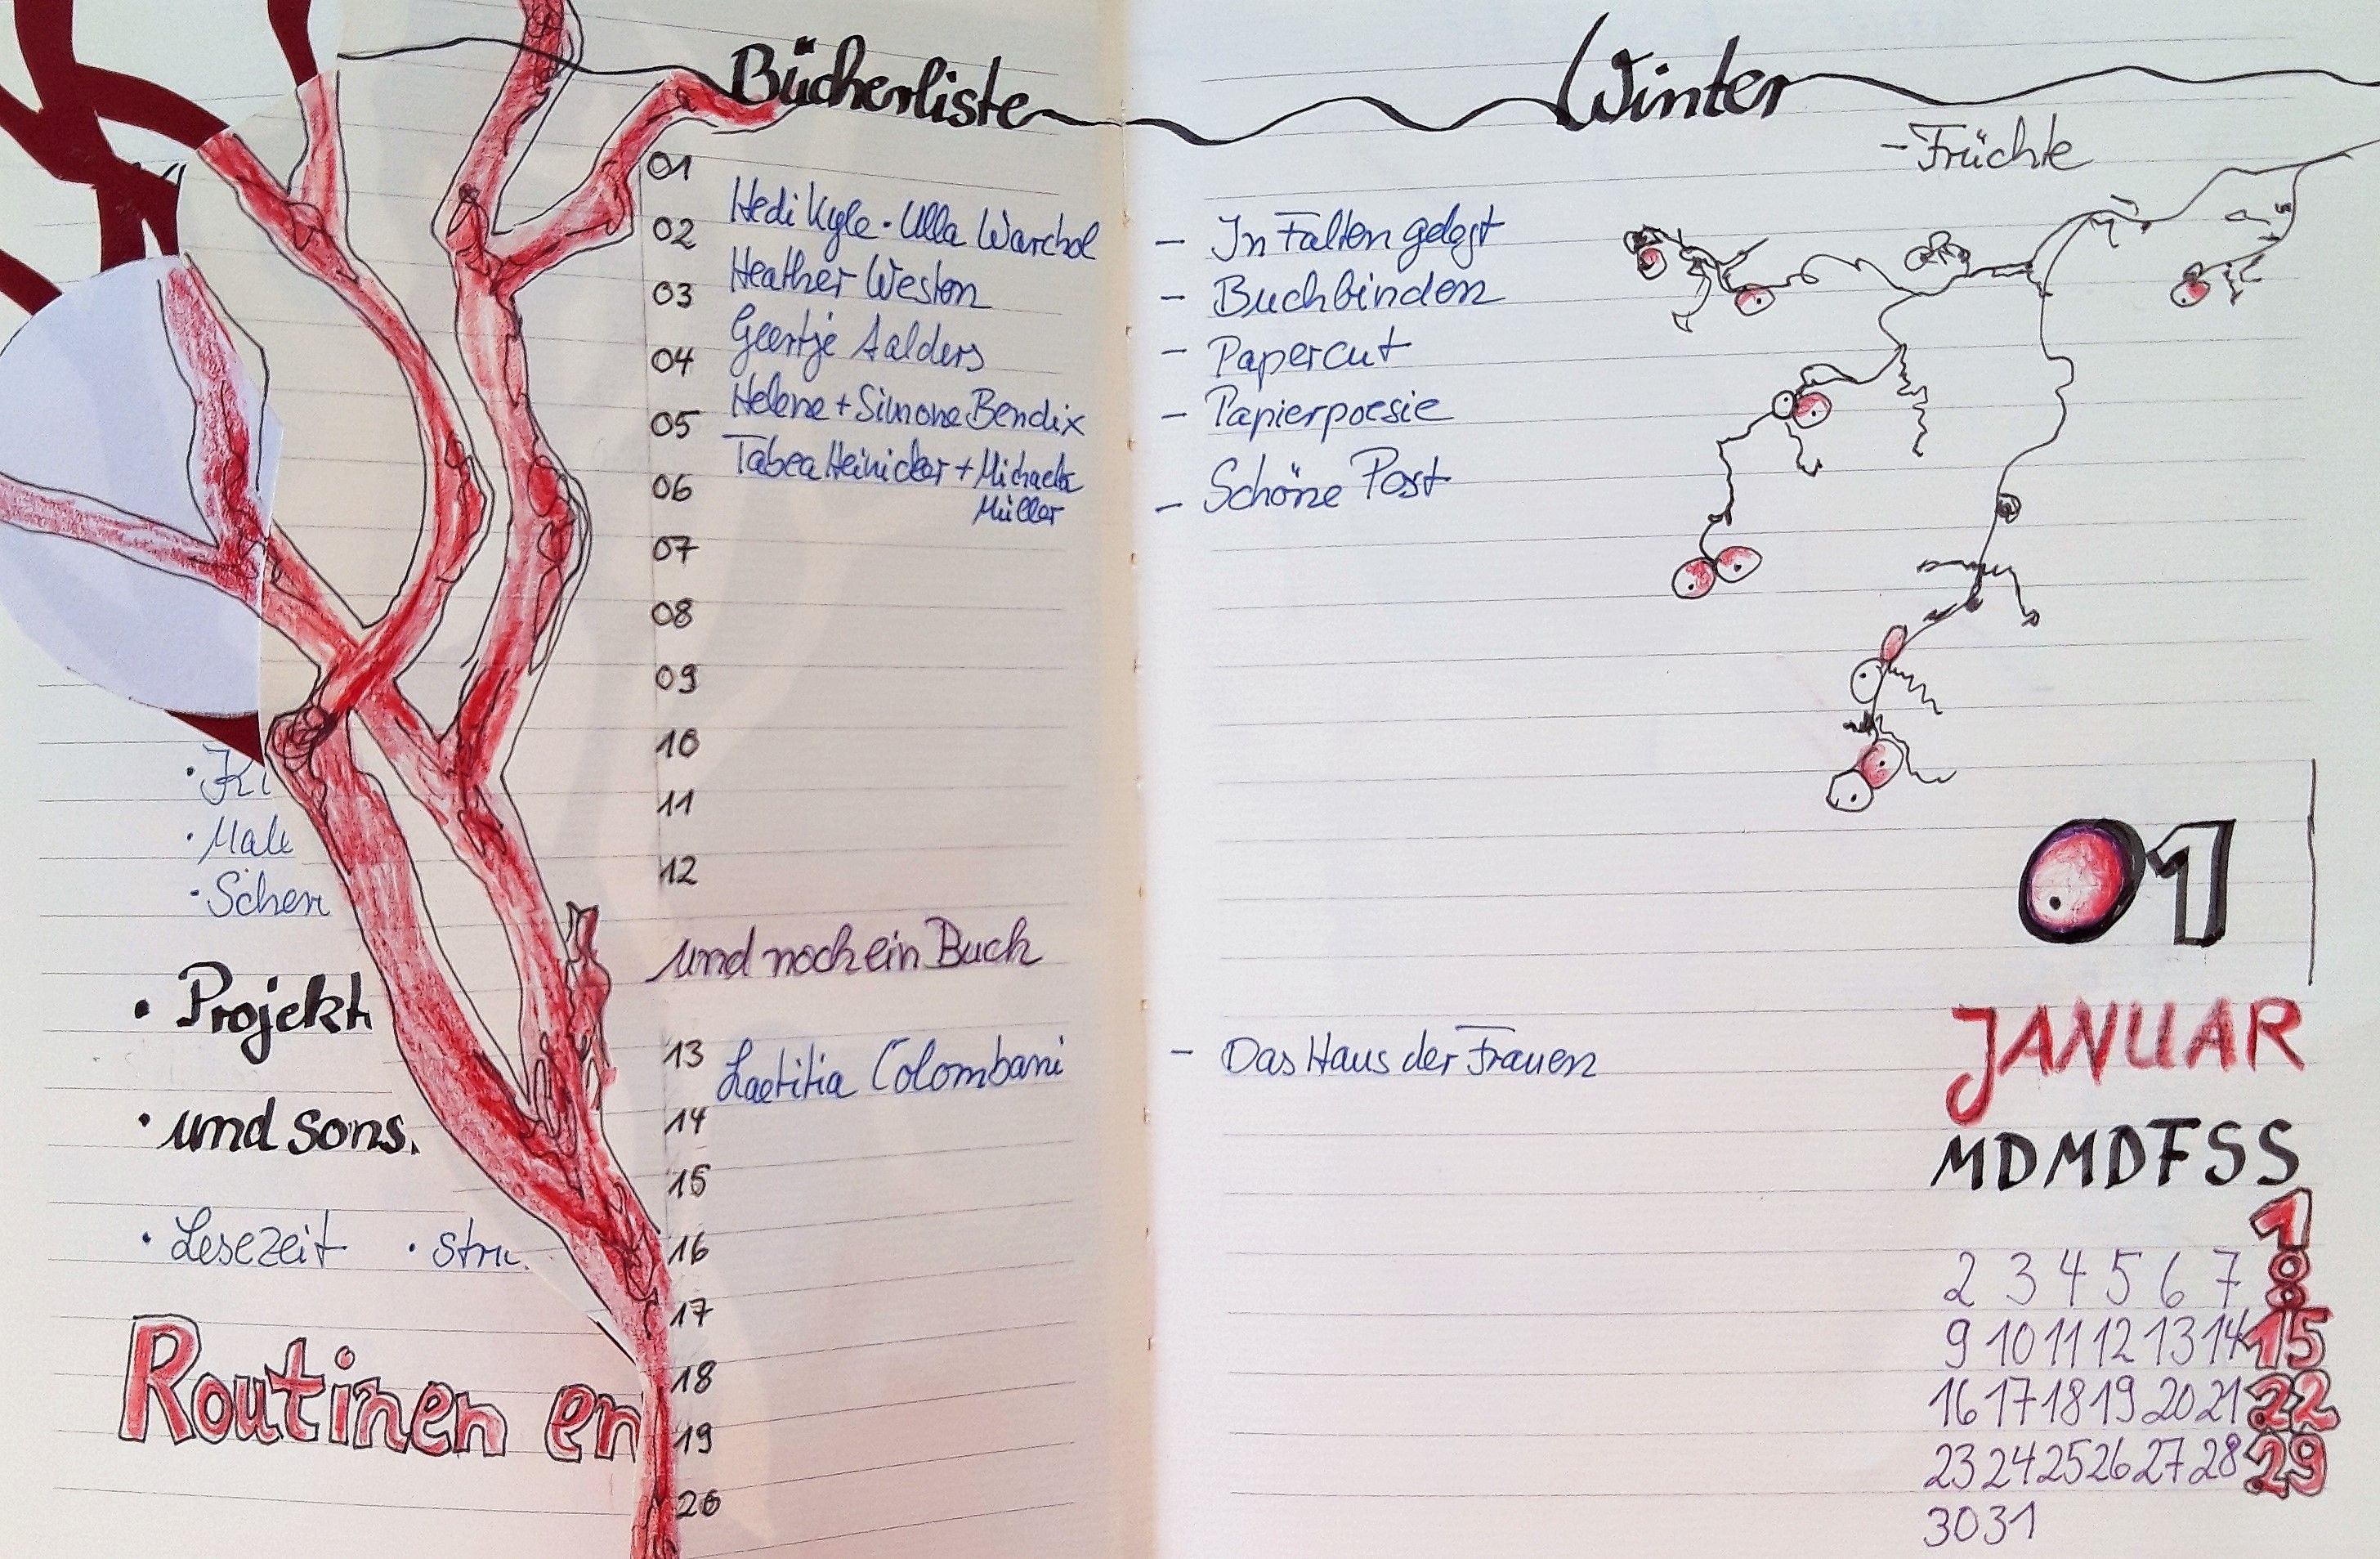 Bücherliste
Winter
- Früchte
01
Hedi Kyle · Ulla Warchol
02
- In Falten gelegt
Heather Weston
03
- Buchbinden
Geertje Aalders
04
- Papercut
Helene + Simone Bendix
05
- Papierpoesie
Tabea Heinicker + Michaela
06
Müller
- Schöne Post
07
08
09
10
11
12
und noch ein Buch
13
Laetitia Colombani
- Das Haus der Frauen
14
15
16
17
18
19
20
· Ki
· Male
· Scher
· Projekt
· und sons.
· Lesezeit · stru
Routinen en
01
JANUAR
M D M D F S S
1
2 3 4 5 6 7 8
9 10 11 12 13 14 15
16 17 18 19 20 21 22
23 24 25 26 27 28 29
30 31